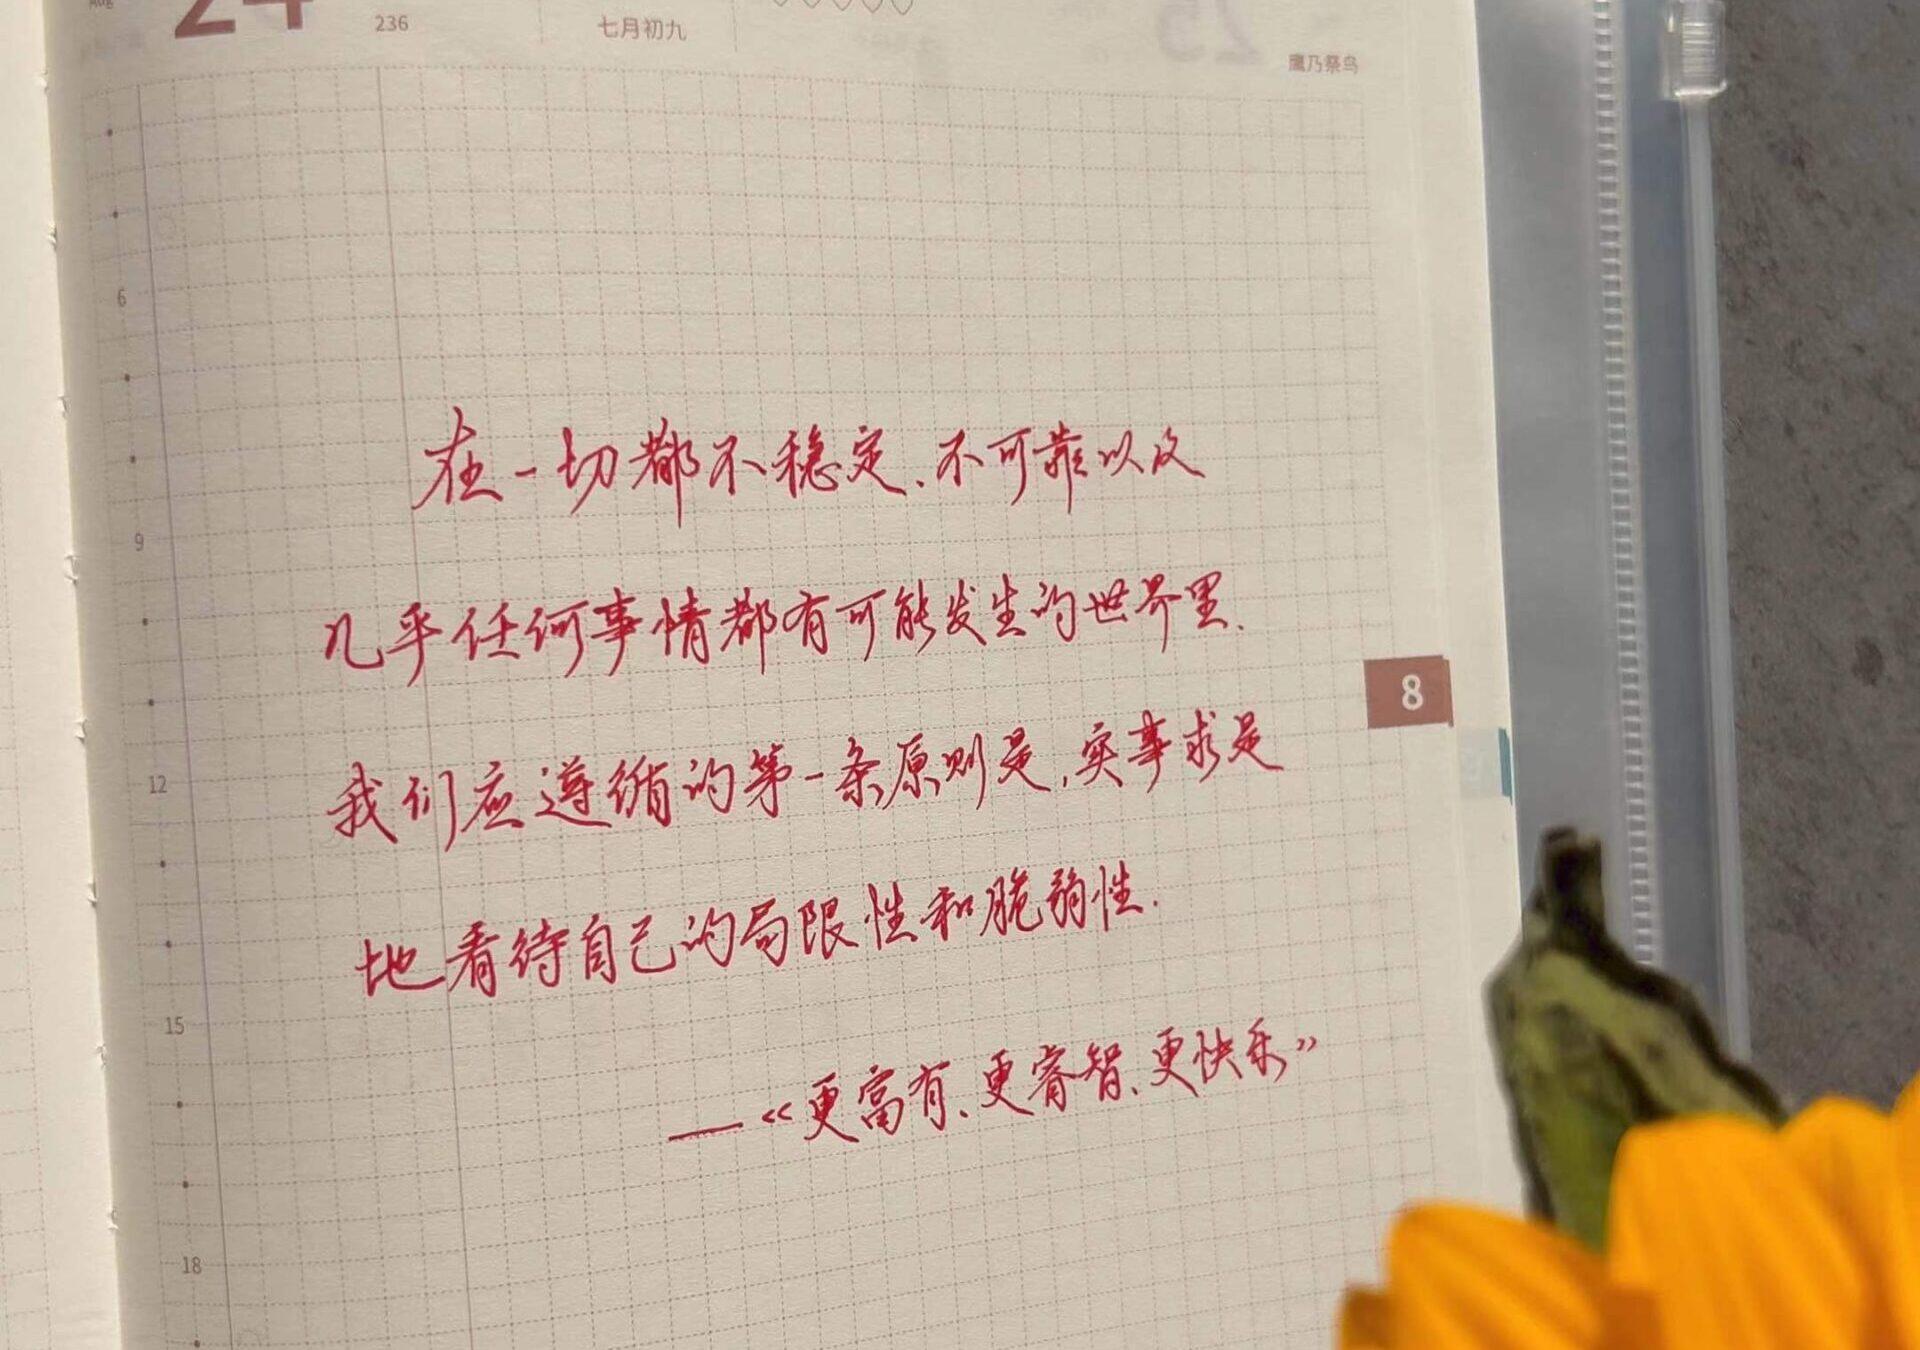 Aug
24
236
七月初九
25
鷹乃祭鸟
6
9
12
15
18
8
在一切都不稳定、不可靠以及
几乎任何事情都有可能发生的世界里，
我们应遵循的第一条原则是，实事求是
地看待自己的局限性和脆弱性.
——《更富有、更睿智、更快乐》